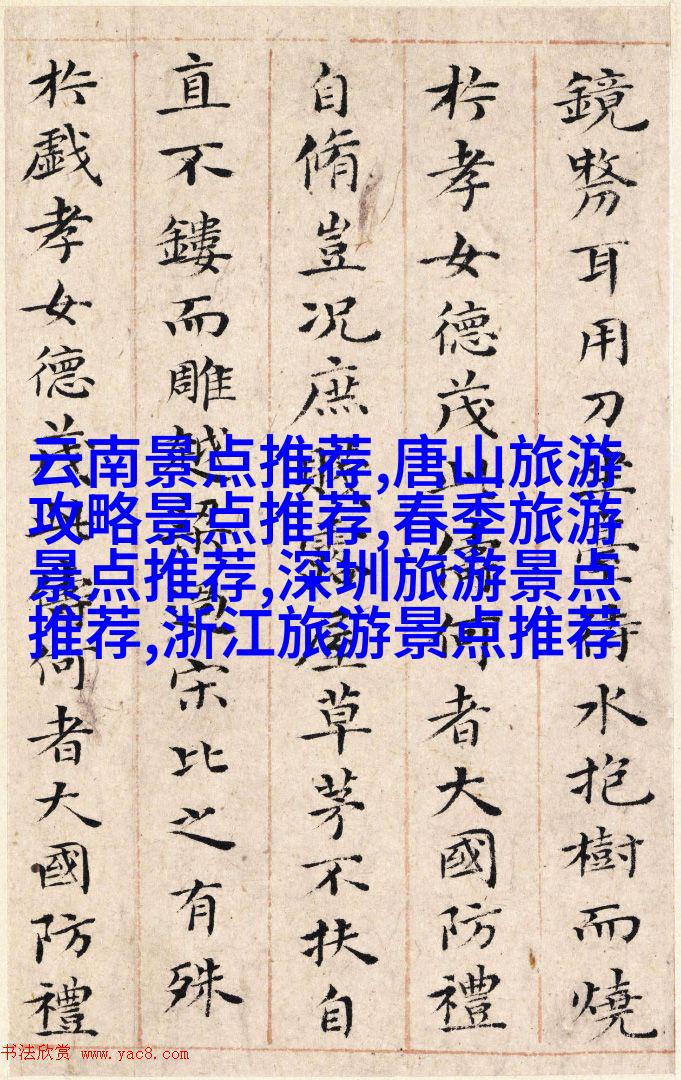 鏡耳用刀水抱樹而燒
扵孝女德茂何者大國防禮
自脩豈况庶屋草茅不扶自
直不鏤而雕越宋比之有殊
扵戲孝女德茂何者大國防禮
云南景点推荐,唐山旅游
攻略景点推荐,春季旅游
景点推荐,深圳旅游景点
推荐,浙江旅游景点推荐
书法欣赏 www.yac8.com